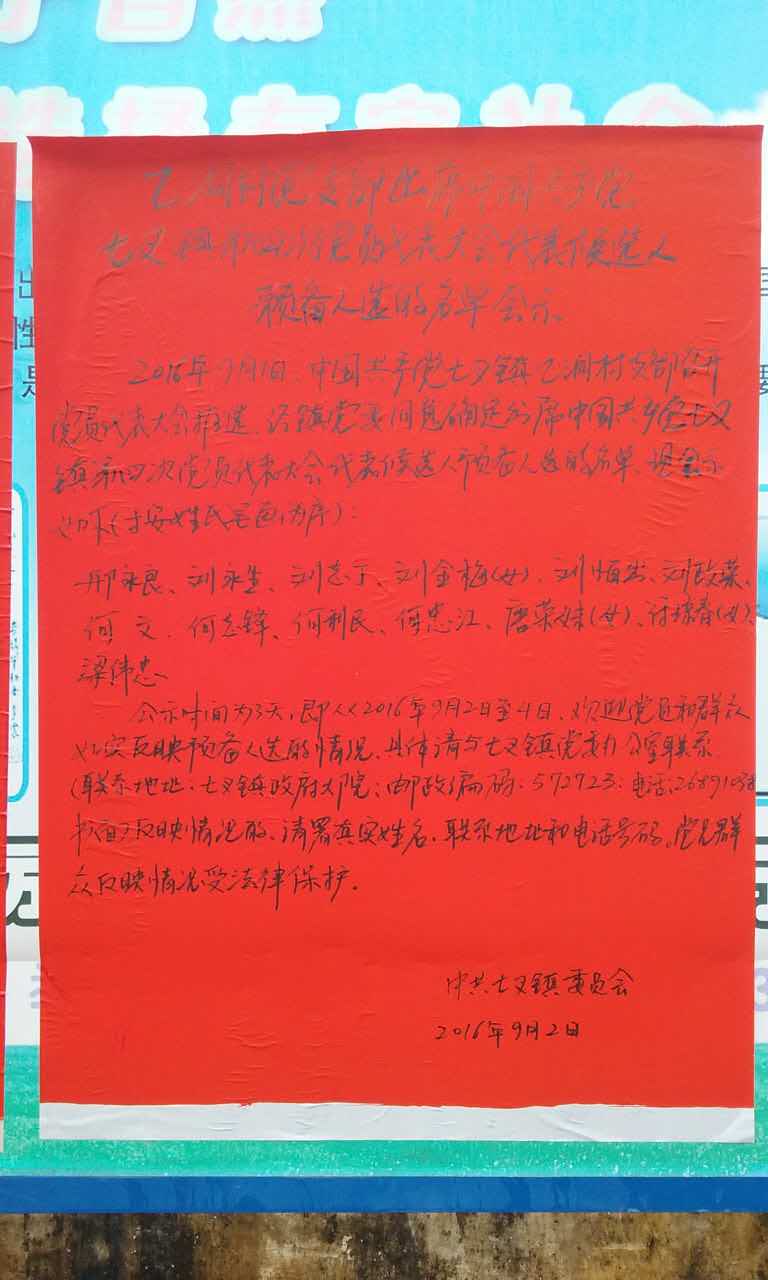 乙洞村党支部出席中国共产党
七叉镇第四次党员代表大会代表候选人
预备人选的名单公示
2016年9月1日,中国共产党七叉镇乙洞村支部召开
党员代表大会推选,经镇党委同意确定出席中国共产党七叉
镇第四次党员代表大会代表候选人预备人选的名单,现公示
如下(按姓氏笔画为序):
邢永良、刘永生、刘志丁、刘金梅(女)、刘恒、刘政荣、
何文、何志锋、何利民、何忠江、唐荣妹(女)、符琼春(女)、
梁伟忠
公示时间为3天,即从2016年9月2日至4日,欢迎党员和群众
如实反映预备人选的情况,具体请与七叉镇党委办公室联系
(联系地址:七叉镇政府大院;邮政编码:572723;电话:26891038
书面反映情况的,请署真实姓名、联系地址和电话号码。党员群
众反映情况受法律保护。
中共七叉镇委员会
2016年9月2日